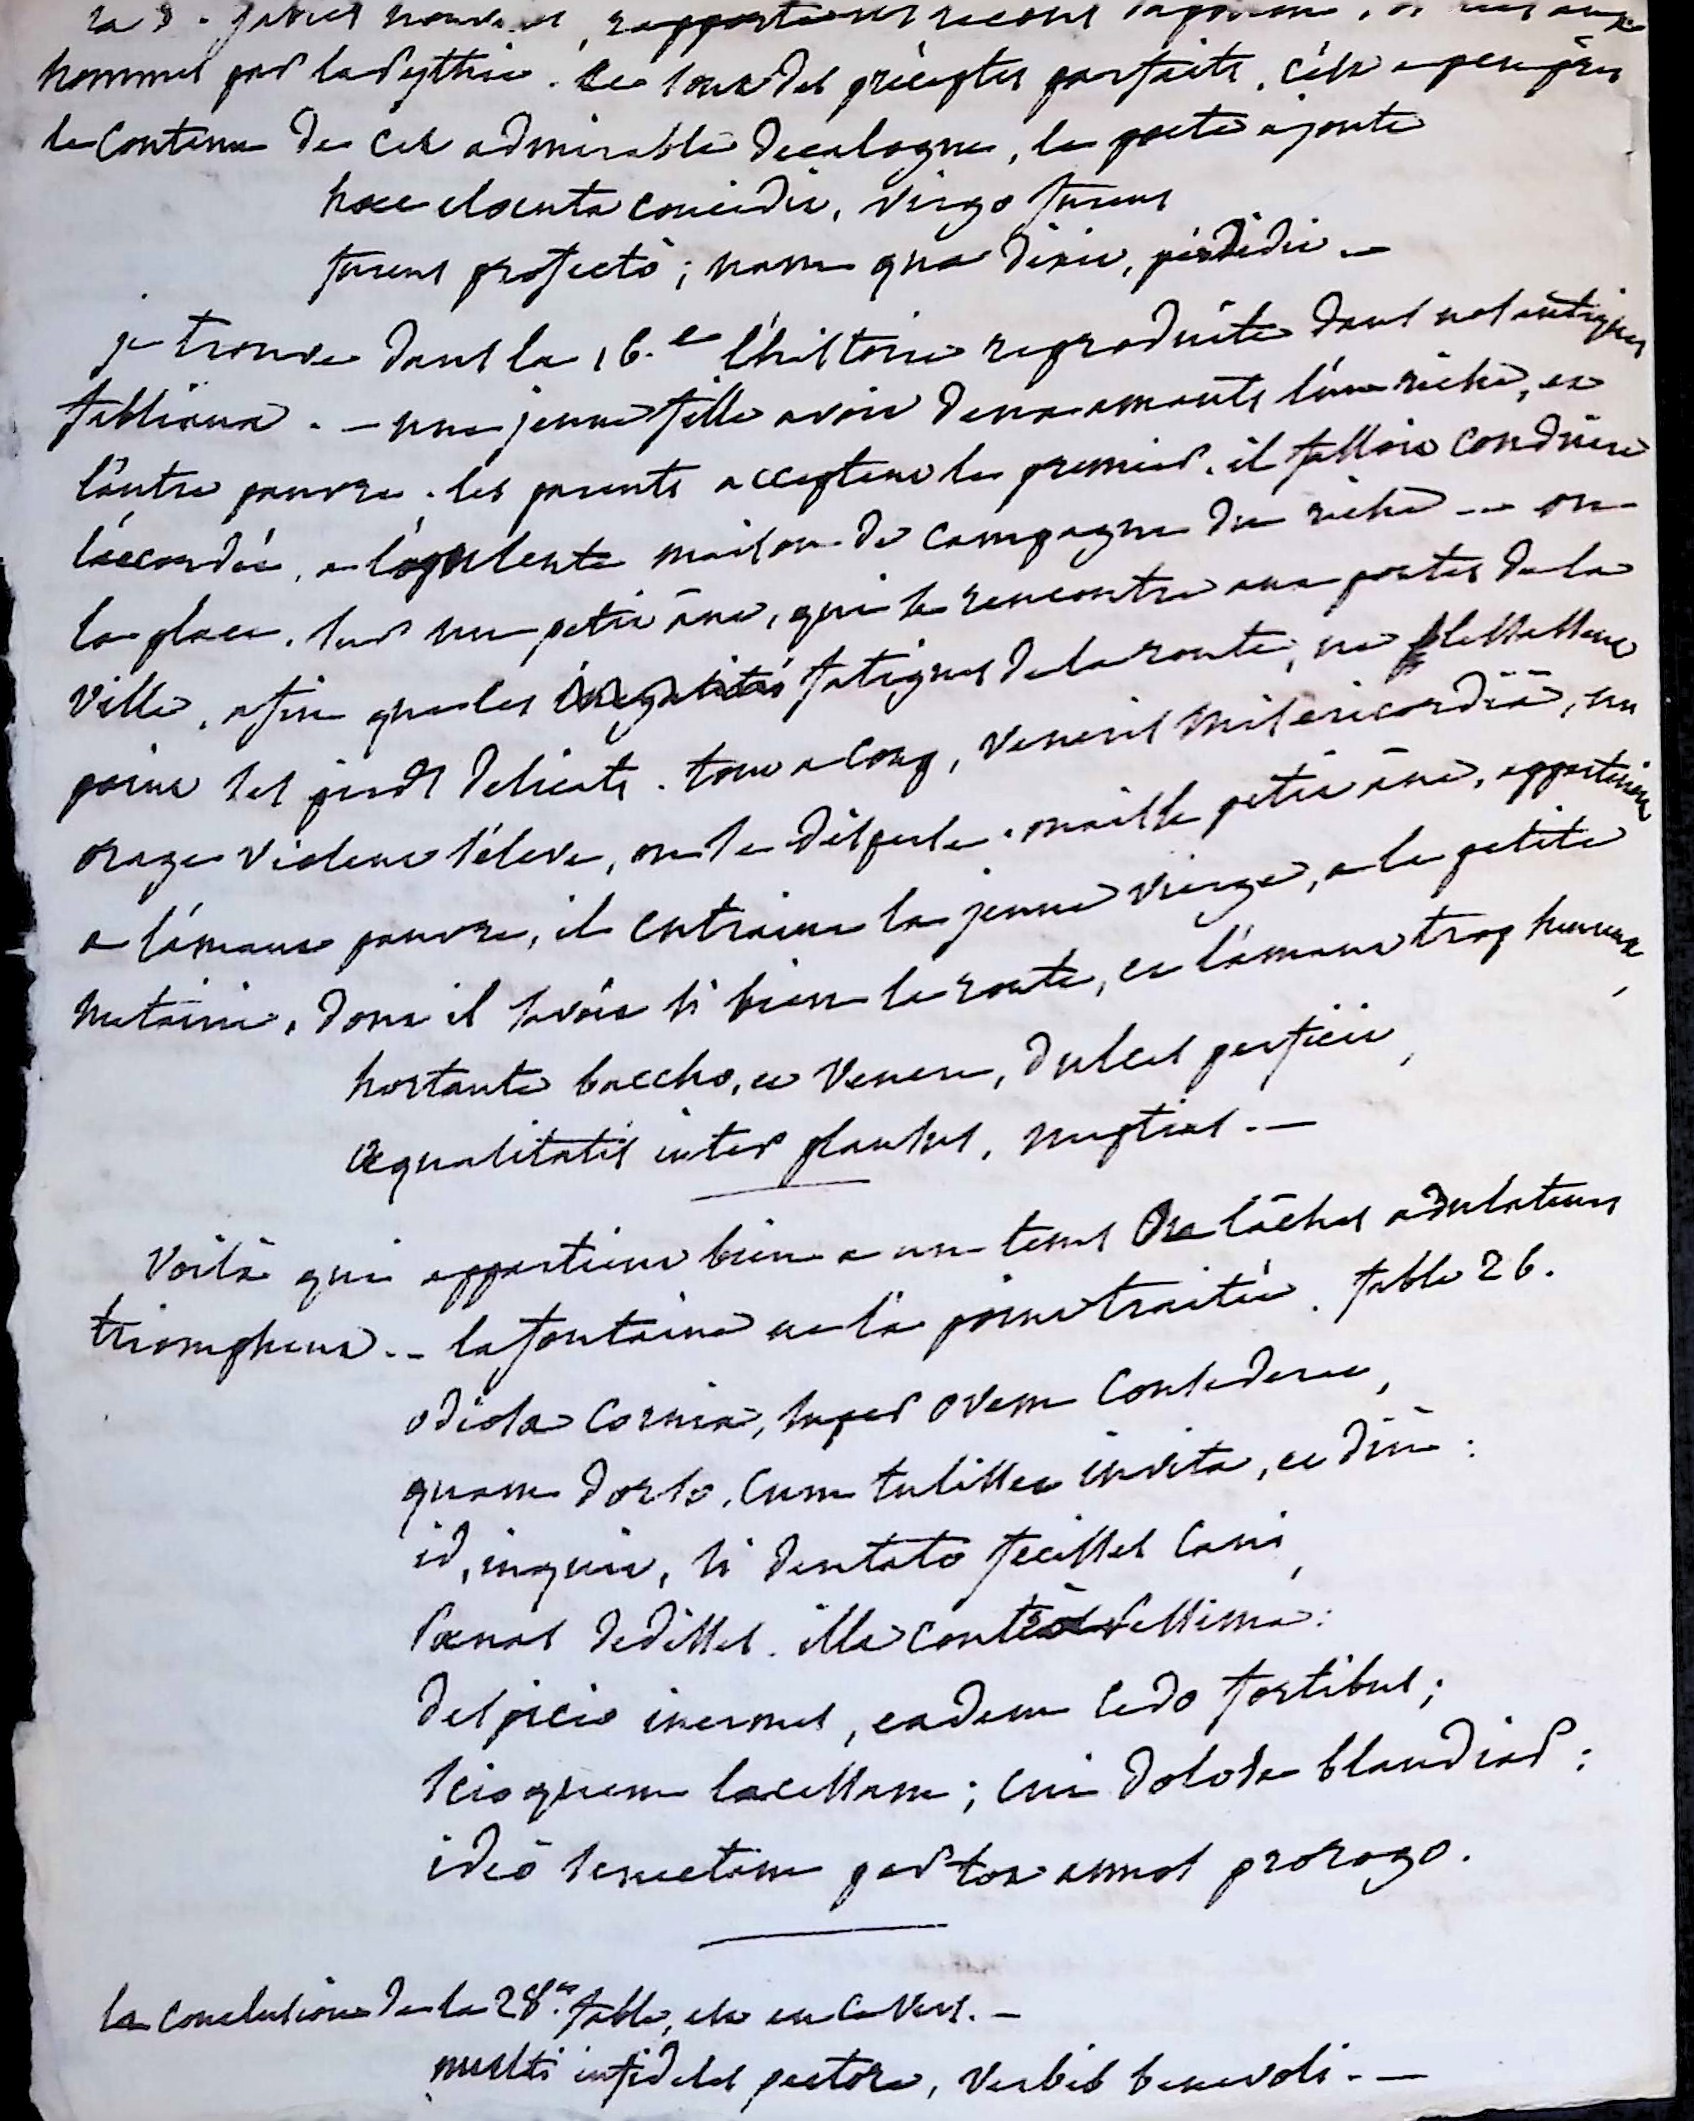 la 8. fables nouvelles, rapporte les secours d'apollon, 
hommes par la Pythie. Ce sont des préceptes parfaits. C'est a peu près
le contenu de cet admirable decalogue, le poete ajoute
haec elocuta concidit, virgo furens
furens profectò; nam qua dixit, perdidit —
je trouve dans la 16.e l'histoire reproduite dans nos antiques
fabliaux. — une jeune fille avoit deux amants l'un riche, et
l'autre pauvre. les parents acceptent le premier. il falloit conduire
l'accordée, a l'opulente maison de campagne du riche — on
la place, sur un petit âne, qui se rencontre aux portes de la
ville, afin que les fatigues de la route, ne blessassent
point ses pieds delicats. tout a coup, veneris misericordiâ, un
orage violent s'éleve, on se disperse. mais le petit âne, appartenoit
a l'amant pauvre, il entraine la jeune vierge, a la petite
métairie, dont il savoit si bien la route, et l'amant trop heureux,
hortante baccho, et Venere, dulces perficit,
aequalitatis inter plausus, nuptias. —
Voilà qui appartient bien a un tems de lâches adulateurs
triomphans. — lafontaine ne l'a point traitée. fable 26.
odiosa cornix, super ovem consederat,
quam dorso, cum tulisset invita, et diù:
id, inquit, si dentato fecisses cani,
Poenas dedisses. illa contrà pessima:
despicio inermes, eadem cedo fortibus;
scio quem lacessam; cui dolosa blandiar:
ideò senectam per tot annos prorogo.
la conclusion de la 28.e fable, est en ce vers. —
multi infideles pectore, verbis benevoli. —